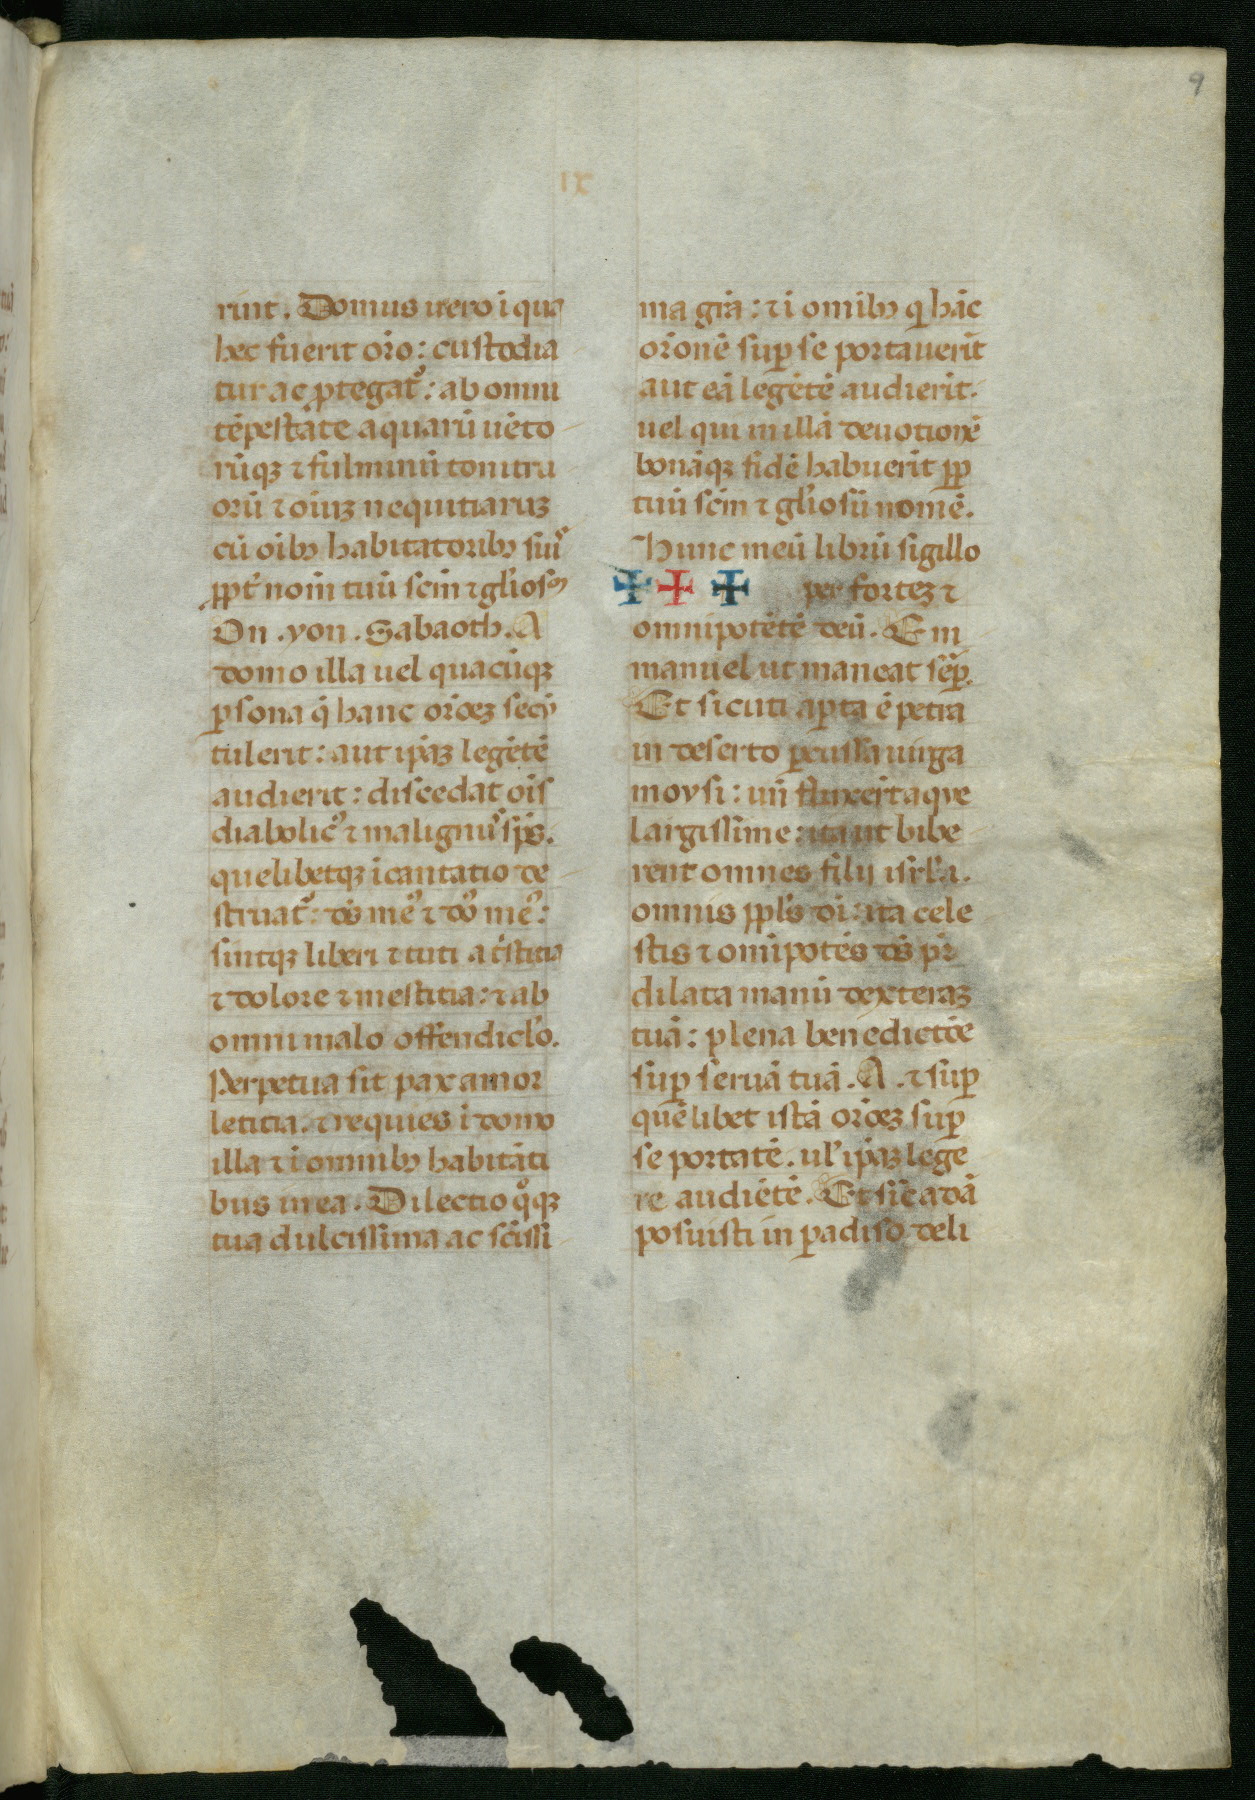 9
ıx
rint. Domus uero ı̄ qua
hec fuerit or̄o: custodia
tur ac ꝓtegat᷑: ab omni
tēpestate aquarū uēto
rūqꝫ ⁊ fulminū tonitru
orū ⁊ oı̄uꝫ nequitiaruꝫ
cū oı̄bꝫ habitatoribꝫ suı᷒
ꝓpt̄ nom̄ tuū scm̄ ⁊ gl̄ıosū
On .yon. Sabaoth. A
domo illa uel quacūqꝫ
ꝑsona q̄ hanc or̄oēꝫ secū
tulerit: aut ip̄aꝫ legētē
audierit: discedat oı̄s
diabolic᷒ ⁊ malignu᷒ sp̄s.
quelibetqꝫ ı̄cantatio de
struat᷑: d̄s me᷒ ⁊ d̄s me᷒:
sintqꝫ liberi ⁊ tuti a t̄stitia
⁊ dolore ⁊ mestitia: ⁊ ab
omni malo offendicl̄o.
Perpetua sit pax amor
letitia. ⁊ requies ı̄ domo
illa ⁊ ı̄ omnibꝫ habitāti
bus in ea. Dilectio qͦqꝫ
tua dulcissima ac sc̄issi
ma gr̄a: ⁊ ı̄ omı̄bꝫ q̄ hāc
or̄onē suꝑ se portauerīt
aut eā legētē audierīt.
uel qui in illā deuotionē
bonāqꝫ fidē habuerīt ꝓꝑ
tuū scm̄ ⁊ gl̄ıosū nomē.
Hunc meū librū sigillo
✠ ✠ ✠ per forteꝫ ⁊
omnipotētē deū. Em
manuel ut maneat sēꝑ.
Et sicuti aꝑta ē petra
in deserto ꝑcussa uirga
moysi: uñ fluxer̄t aque
largissime: ita ut bibe
rent omnes filii isrl̄a.
omnis ppl̄s dı̄: ita cele
stis ⁊ omı̄potēs d̄s pr̄
dilata manū dexteraꝫ
tuā: plena benedictōe
suꝑ seruā tuā. A. ⁊ suꝑ
quēlibet istā or̄oēꝫ suꝑ
se portātē. ul̓ ip̄aꝫ lege
re audiētē. Et sı̄c adā
posuisti in ꝑadiso deli